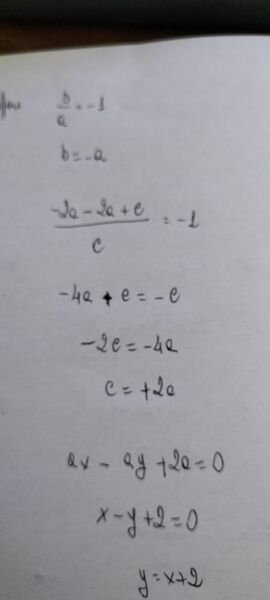 b/a = -1
b = -a
(-2a - 2a + c)/c = -1
-4a + c = -c
-2c = -4a
c = +2a
ax - ay + 2a = 0
x - y + 2 = 0
y = x + 2